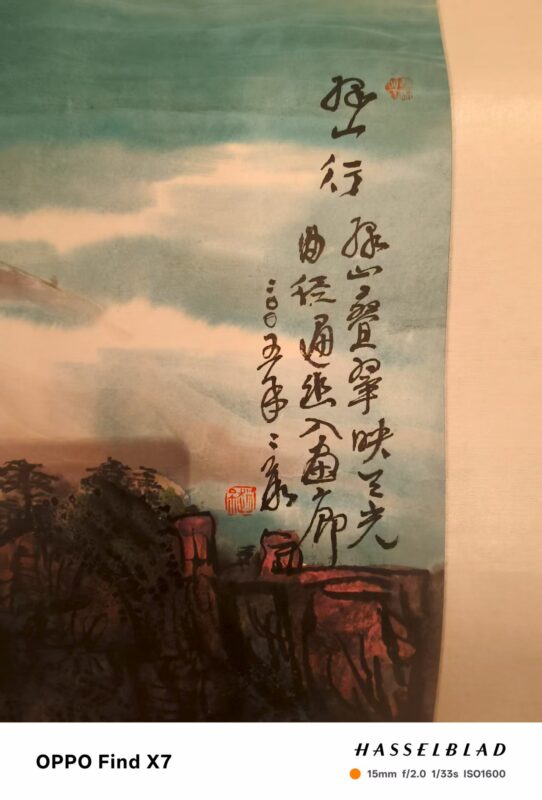 绿山行
绿山叠翠映天光
曲径通幽入画廊
二〇〇五年
OPPO Find X7
HASSELBLAD
15mm f/2.0 1/33s ISO1600